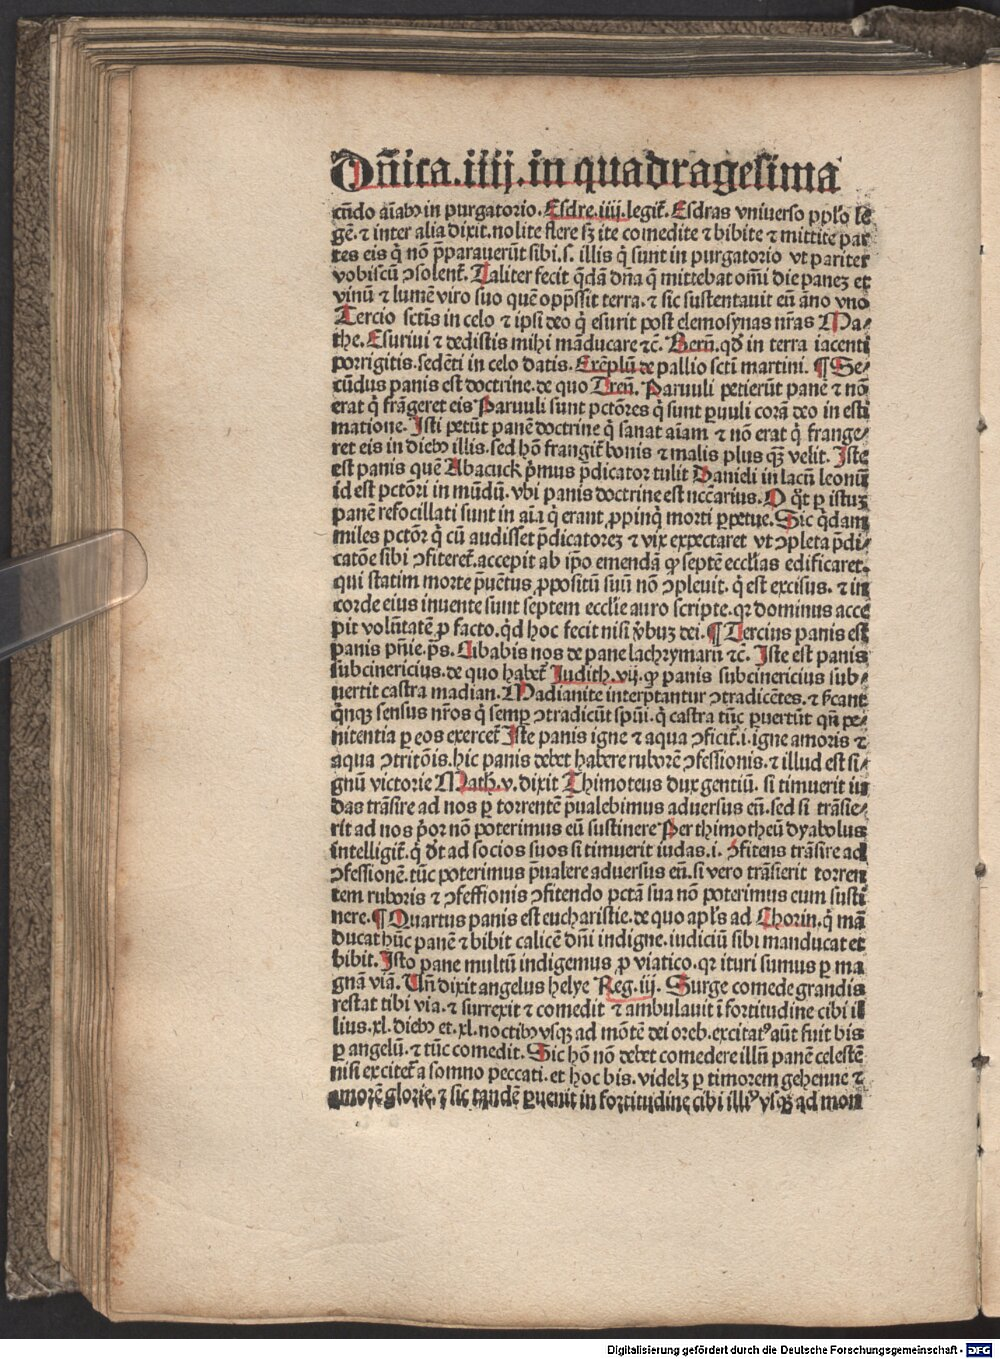 Dñica.iiij.in quadragesima
cũdo aĩabꝫ in purgatorio. Esdre.iiij.legit̃. Esdras vniuerso pplo le
gẽ.⁊ inter alia dixit.nolite flere sꝫ ite comedite ⁊ bibite ⁊ mittite par
tes eis q̃ nõ p̃parauerũt sibi.s. illis q̃ sunt in purgatorio vt pariter
vobiscũ ꝯsolent̃. Taliter fecit q̃dã dña q̃ mittebat oм̃i die paneꝫ et
vinũ ⁊ lumẽ viro suo quẽ opp̃ssit terra.⁊ sic sustentauit eũ ãno vno
Tercio sctĩs in celo ⁊ ipsi deo q̃ esurit post elemosynas nr̃as Ma⸗
the. Esuriui ⁊ dedistis mihi mãducare ⁊c̃. Berñ.qđ in terra iacenti
porrigitis.sedẽti in celo datis. Exẽplũ de pallio sctĩ martini. ¶ Se⸗
cũdus panis est doctrine.de quo Treñ. Paruuli petierũt panẽ ⁊ nõ
erat q̃ frãgeret eis Paruuli sunt pctõres q̃ sunt ꝑuuli corã deo in esti
matione. Isti petũt panẽ doctrine q̃ sanat aĩam ⁊ nõ erat q̃ frange⸗
ret eis in diebꝫ illis.sed hõ frangit̃ bonis ⁊ malis plus qꝫ̃ velit. Iste
est panis quẽ Abacuck p̃mus p̃dicator tulit Danieli in lacũ leonũ
id est pctõri in mũdũ.vbi panis doctrine est nccãrius. O q̃t ꝑ istuꝫ
panẽ refocillati sunt in aĩa q̃ erant ꝓpinq̃ morti ꝑpetue. Sic q̃dam
miles pctõr q̃ cũ audisset p̃dicatoreꝫ ⁊ vix expectaret vt ꝯpleta p̃di⸗
catõe sibi ꝯfiteret̃.accepit ab ip̃o emendã ꝙ septẽ ecclĩas edificaret.
qui statim morte p̃uẽtus ꝓpositũ suũ nõ ꝯpleuit. q̃ est excisus. ⁊ in
corde eius inuente sunt septem ecclĩe auro scripte.qꝛ dominus acce
pit volũtatẽ ꝓ facto.q̃d hoc fecit nisi v̾buꝫ dei.¶ Tercius panis est
panis pñie.p̃s. Cibabis nos de pane lachrymarũ ⁊c̃. Iste est panis
subcinericius.de quo habet̃ Judith.vij.ꝙ panis subcinericius sub⸗
uertit castra madian. Madianite interp̃tantur ꝯtradicẽtes.⁊ sc̃ant
q̃nqꝫ sensus nr̃os q̃ semꝑ ꝯtradicũt spũi.q̃ castra tũc ꝑuertũt qñ pe⸗
nitentia ꝑ eos exercet̃ Iste panis igne ⁊ aqua ꝯficit̃.i.igne amoris ⁊
aqua ꝯtritõis.hic panis debet habere ruborẽ ꝯfessionis.⁊ illud est si⸗
gnũ victorie Math.v.dixit Thimoteus dux gentiũ. si timuerit iu
das trãsire ad nos ꝑ torrentẽ p̃ualebimus aduersus eũ.sed si trãsie⸗
rit ad nos p̃or nõ poterimus eũ sustinere Per thimotheũ dyabolus
intelligit̃.q̃ đt ad socios suos si timuerit iudas.i. ꝯfitens trãsire ad
ꝯfessionẽ.tũc poterimus p̃ualere aduersus eñ.si vero trãsierit torren
tem ruboris ⁊ ꝯfessionis ꝯfitendo pctã sua nõ poterimus eum susti
nere.¶ Quartus panis est eucharistie.de quo apl̃s ad Chorin.q̃ mã
ducat hũc panẽ ⁊ bibit calicẽ dñi indigne.iudiciũ sibi manducat et
bibit. Isto pane multũ indigemus ꝓ viatico.qꝛ ituri sumus ꝑ ma
gnã viã. Uñ dixit angelus helye Reg.iij. Surge comede grandis
restat tibi via.⁊ surrexit ⁊ comedit ⁊ ambulauit ĩ fortitudine cibi il
lius.xl.diebꝫ et.xl.noctibꝫ vsqꝫ ad mõtẽ dei oreb.excitatꝰ aũt fuit bis
ꝑ angelũ.⁊ tũc comedit. Sic hõ nõ debet comedere illũ panẽ celestẽ
nisi excitet̃ a somno peccati.et hoc bis.videlꝫ ꝑ timorem gehenne ⁊
amorẽ glorie.⁊ sic tandẽ ꝑuenit in fortitudine cibi illiꝰ vsqꝫ ad mon
Digitalisierung gefördert durch die Deutsche Forschungsgemeinschaft - DFG